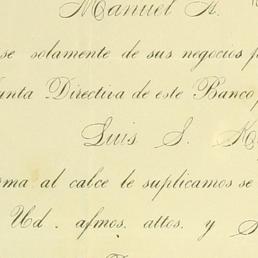 Manuel A.
se solamente de sus negocios p
unta Directiva de este Banco,
Luis S.
rma al calce le suplicamos se
Ud. afmos. attos. y